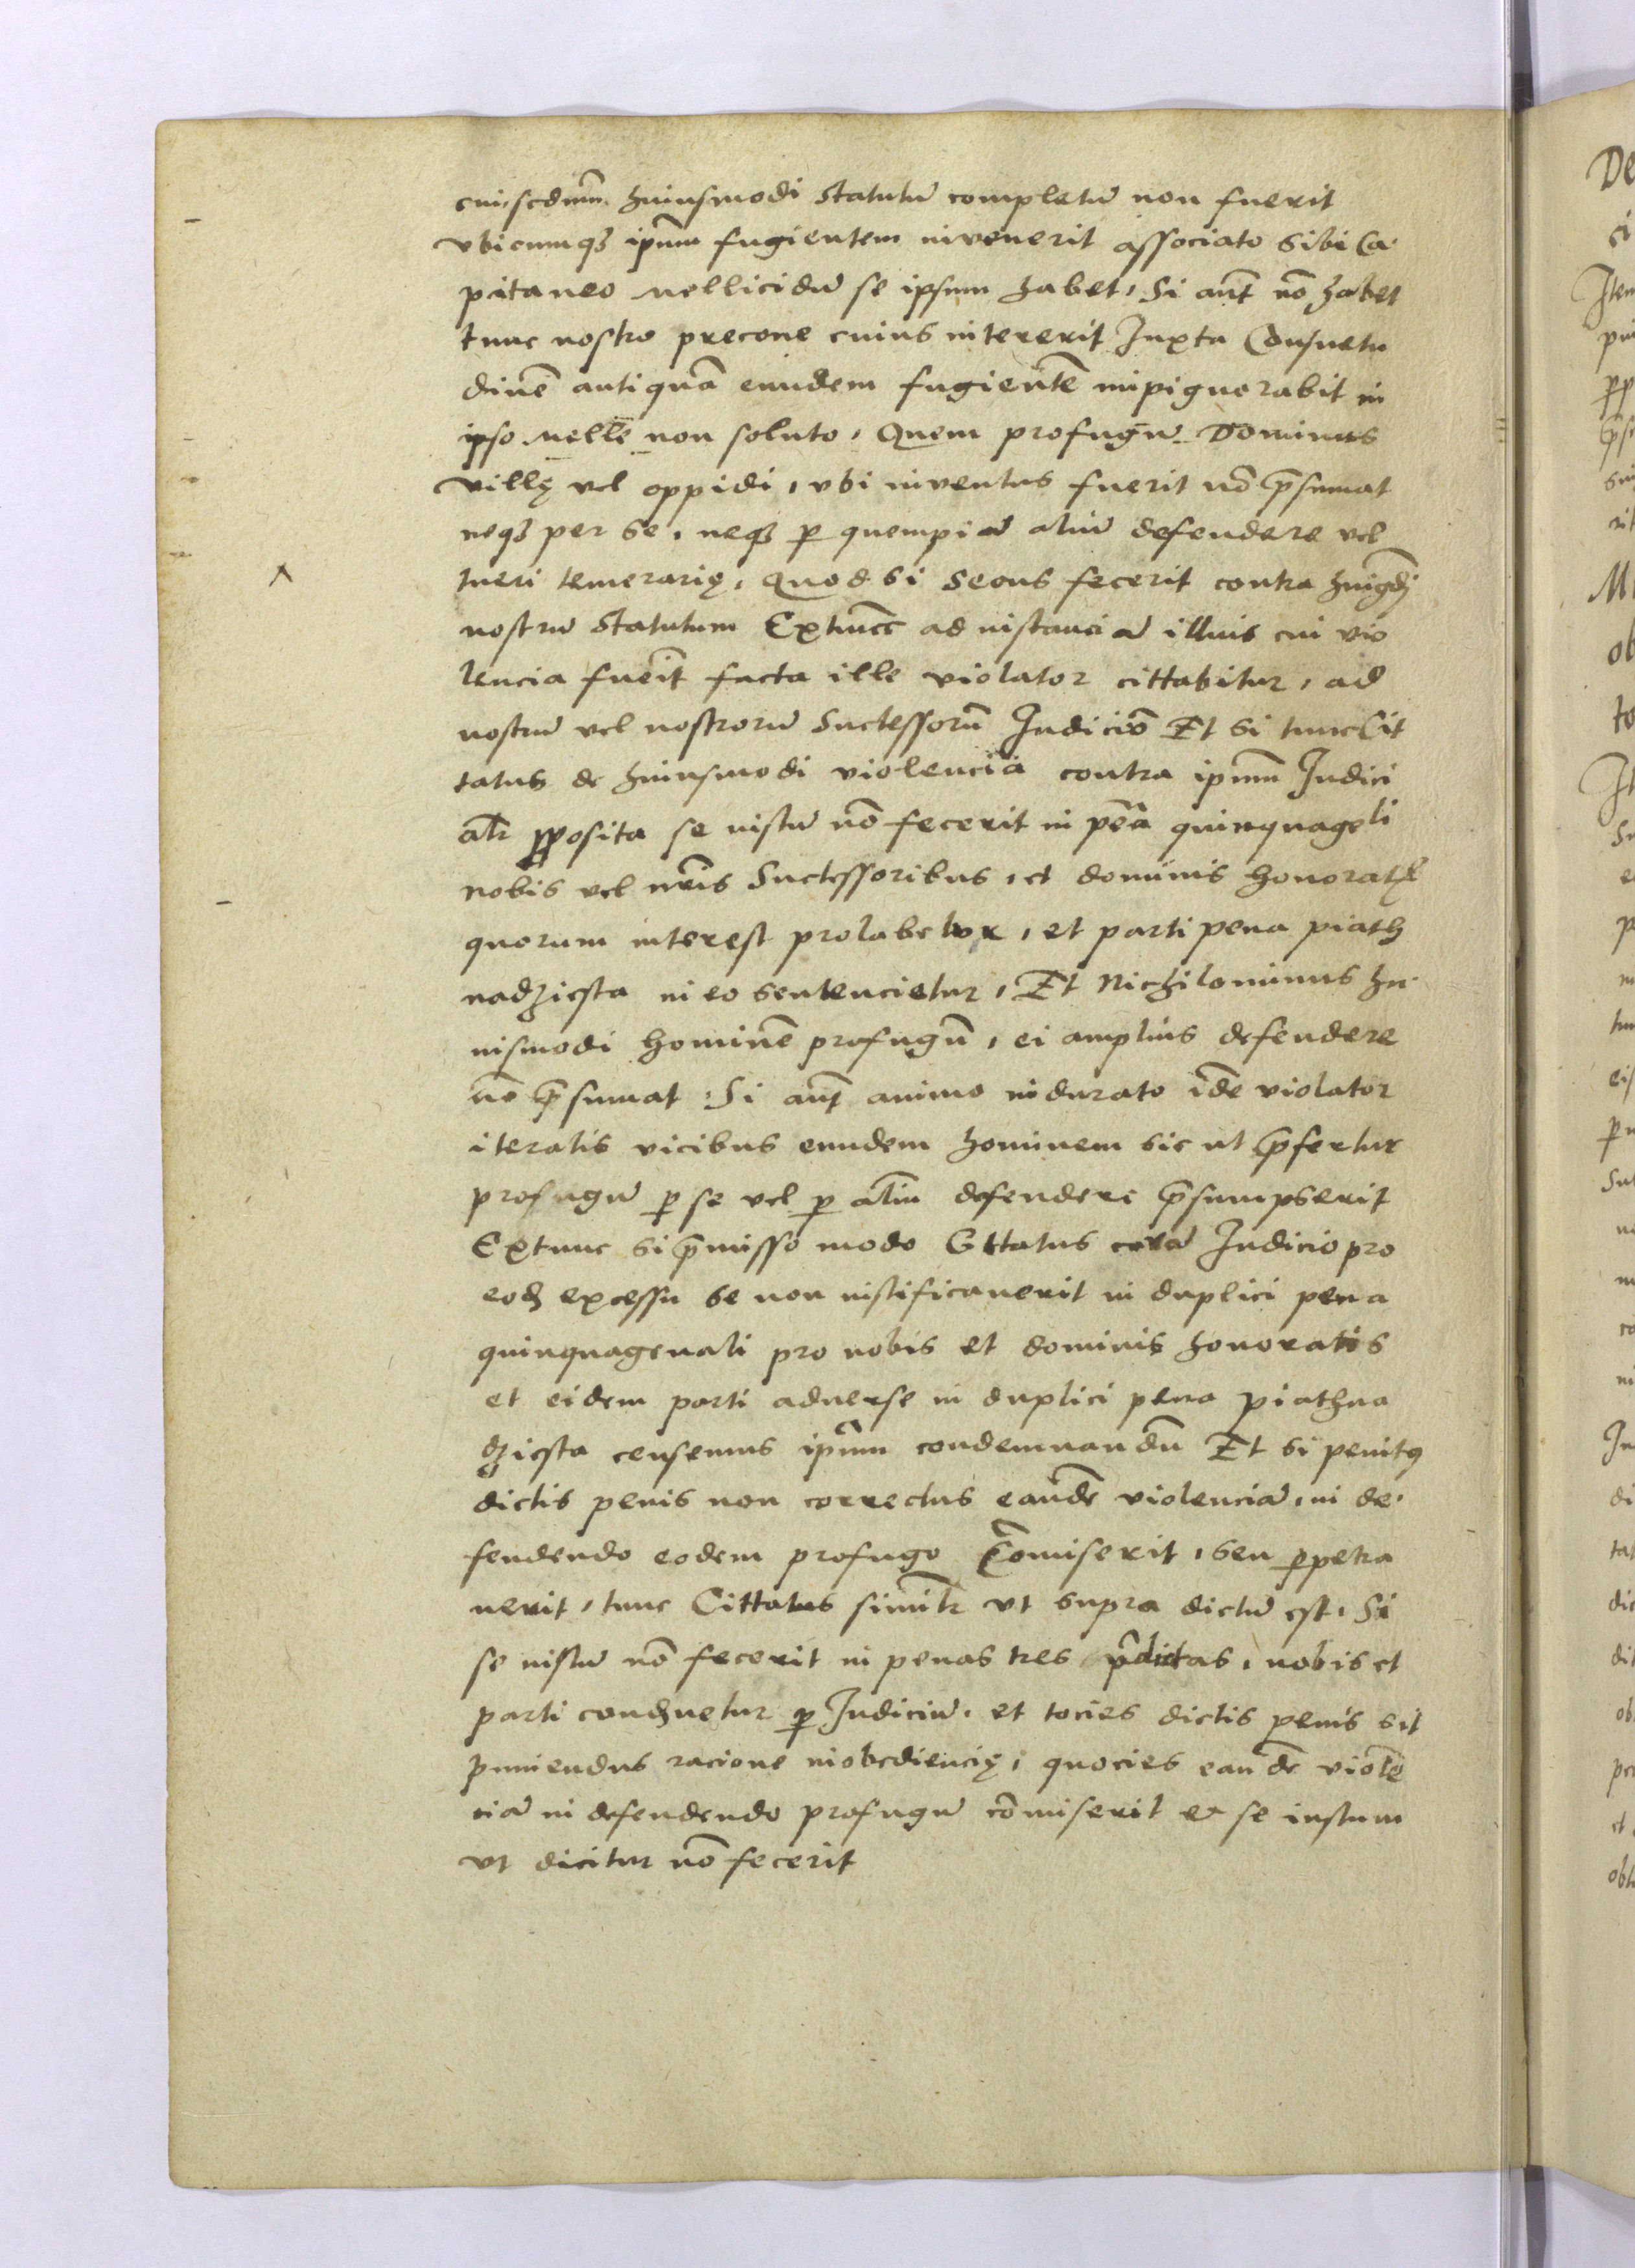 cui, scdmm huiusmodi Statutū completū non fuerit
vbicumqz ipm̄m fugientem invenerit associato Sibi Ca
pitaneo mellicidū se ipsum habet, Si aūt nō habet
tunc nostro precone cuius intererit Juxta Consuetu
dinē antiquā eundem fugientē inpignorabit in
ipso melle non soluto, Quem profugū Dominus
villę vel oppidi, vbi inventus fuerit nō p̄sumat
neqz per se, neqz p quempiā aliū defendere vel
tueri temerarię, Quod si secus fecerit contra
nostrū Statutum Extuncc ad instanciā illius cui vio
lencia fuerit facta ille violator cittabitur, ad
nostrū vel nostrorū Successorū Judiciō Et si tunc Cit
tatus de huiusmodi violencia contra ipm̄m Judici
alr proposita se iustū nō fecerit in pēa quinquageli
nobis vel nris Successoribus, et dominis honorat
quorum interest prolabetur, et parti pena piath
nadziesta in eo sentencietur, Et Nichilominus hu
iusmodi hominē profugū, ei amplius defendere
nō p̄sumat, Si aūt animo indurato idē violator
iteratis vicibus eundem hominem sic ut p̄fertur
profugū p se vel p aliū defendere p̄sumpserit
Extunc si p̄misso modo Cittatus corā Judicio pro
eodz excessu se non iustificauerit in duplici pena
quinquagenali pro nobis et dominis honoratis
et eidem parti aduerse in duplici pena piathna
dziesta censemus ipm̄m condemnandū Et si penitq
dictis penis non correctus eandē violenciā, in de
fendendo eodem profugo Cōmiserit, seu ppetra
uerit, tunc Cittatus similr vt supra dictū est, Si
se iustū nō fecerit in penas tres p̄dictas, nobis et
parti condznetur p Judiciū, et tocies dictis penis sit
puniendus racione inobediencię, quocies eandē violē
ciā in defendendo profugū cōmiserit et se iustum
vt dicitur nō fecerit